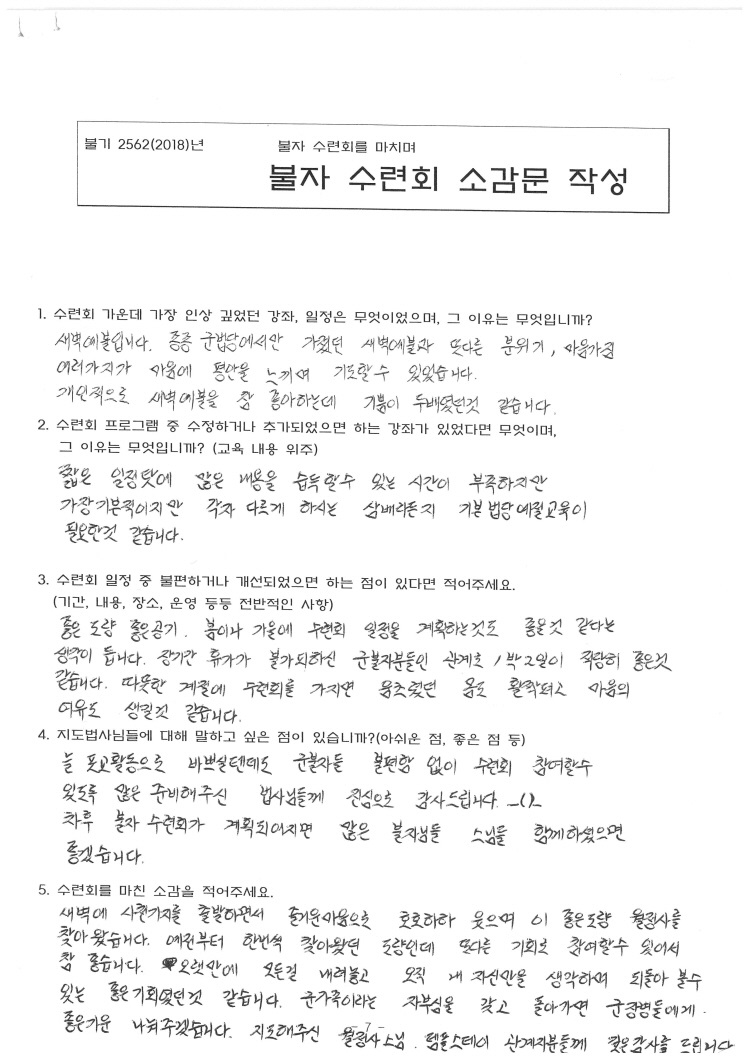 불기 2562(2018)년
불자 수련회를 마치며
불자 수련회 소감문 작성
1. 수련회 가운데 가장 인상 깊었던 강좌, 일정은 무엇이었으며, 그 이유는 무엇입니까?
새벽예불입니다. 종종 군법당에서만 가졌던 새벽예불과 또다른 분위기, 마음가짐
여러가지가 마음에 평안을 느끼며 기도할수 있었습니다.
개인적으로 새벽예불을 참 좋아하는데 기쁨이 두배였던것 같습니다.
2. 수련회 프로그램 중 수정하거나 추가되었으면 하는 강좌가 있었다면 무엇이며,
그 이유는 무엇입니까? (교육 내용 위주)
짧은 일정탓에 많은 내용을 습득할수 있는 시간이 부족하지만
가장기본적이지만 각자 다르게 하시는 삼배라든지 기본 법당예절교육이
필요한것 같습니다.
3. 수련회 일정 중 불편하거나 개선되었으면 하는 점이 있다면 적어주세요.
(기간, 내용, 장소, 운영 등등 전반적인 사항)
좋은 도량 좋은공기. 봄이나 가을에 수련회 일정을 계획하는것도 좋을것 같다는
생각이 듭니다. 장기간 휴가가 불가되하신 군불자분들인 관계로 1박2일이 적당히 좋은것
같습니다. 따뜻한 계절에 수련회를 가지면 움츠렸던 몸도 활짝펴고 마음의
여유도 생길것 같습니다.
4. 지도법사님들에 대해 말하고 싶은 점이 있습니까?(아쉬운 점, 좋은 점 등)
늘 포교활동으로 바쁘실텐데도 군불자들 불편함 없이 수련회 참여할수
있도록 많은 준비해주신 법사님들께 진심으로 감사드립니다. _()_
차후 불자 수련회가 계획되어지면 많은 불자님들 스님들 함께하셨으면
좋겠습니다.
5. 수련회를 마친 소감을 적어주세요.
새벽에 사천가지를 출발하면서 즐거운마음으로 호호하하 웃으며 이 좋은도량 월정사를
찾아왔습니다. 예전부터 한번씩 찾아왔던 도량인데 또다른 기회로 참여할수 있어서
참 좋습니다. 오랫만에 모든걸 내려놓고 오직 내 자신만을 생각하며 되돌아 볼수
있는 좋은기회였던것 같습니다. 군가족이라는 자부심을 갖고 돌아가면 군장병들에게.
좋은기운 나눠주겠습니다. 지도해주신 월정사 스님. 템플스테이 관계자분들께 깊은감사를 드립니다
- 7 -